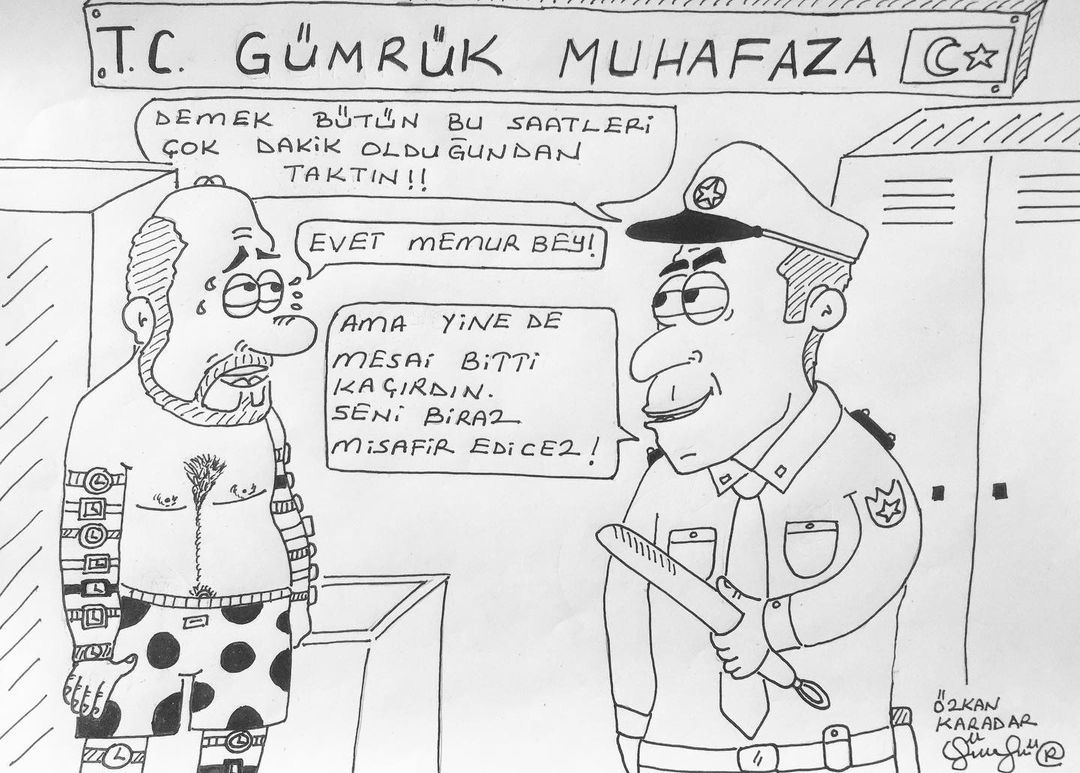 T.C. GÜMRÜK MUHAFAZA
DEMEK BÜTÜN BU SAATLERİ
ÇOK DAKİK OLDUĞUNDAN
TAKTIN!!
EVET MEMUR BEY!
AMA YİNE DE
MESAİ BİTTİ
KAÇIRDIN.
SENİ BİRAZ
MİSAFİR EDİCEZ!
ÖZKAN
KARADAR